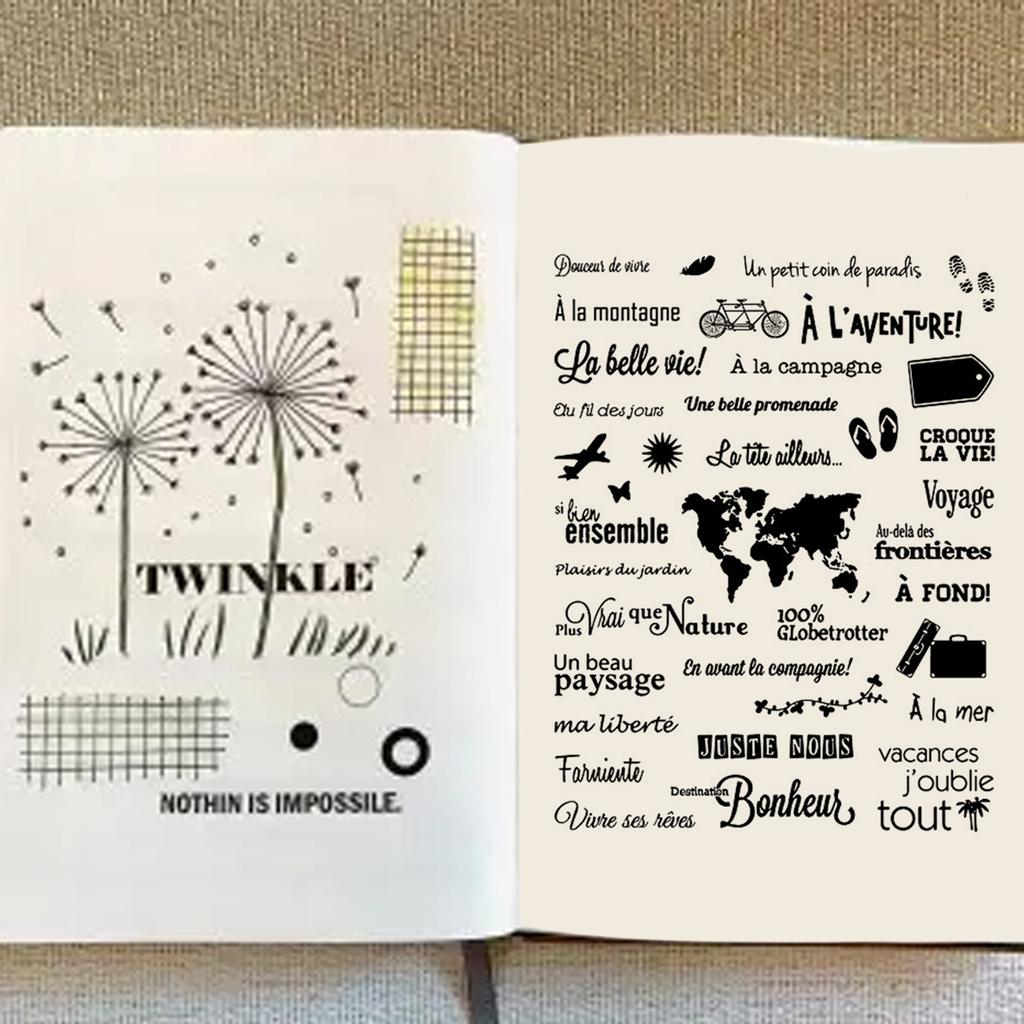 TWINKLE
NOTHIN IS IMPOSSILE.
Douceur de vivre
Un petit coin de paradis
À la montagne
À L'AVENTURE!
La belle vie!
À la campagne
Au fil des jours
Une belle promenade
La tête ailleurs...
CROQUE
LA VIE!
Voyage
si bien
ensemble
Au-delà des
frontières
Plaisirs du jardin
À FOND!
Plus Vrai que Nature
100%
GLobetrotter
Un beau
paysage
En avant la compagnie!
ma liberté
À la mer
JUSTE NOUS
vacances
j'oublie
tout
Farniente
Destination Bonheur
Vivre ses rêves